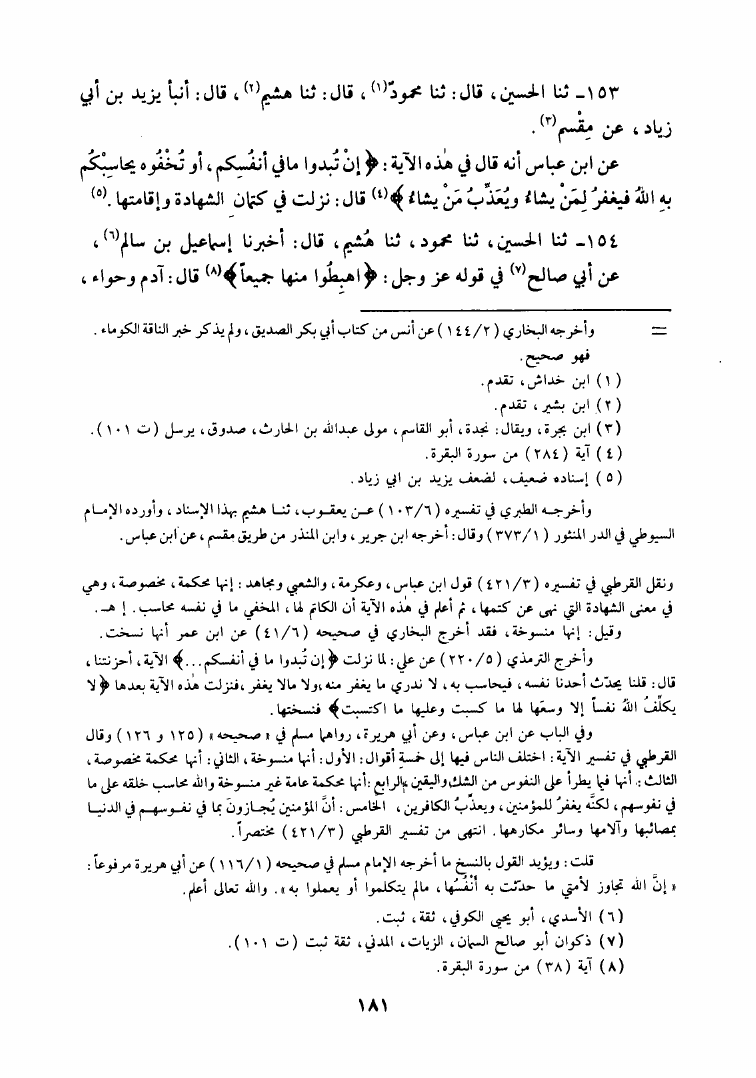 ١٥٣ـ ثنا الحسين، قال: ثنا محمودٌ(١)، قال: ثنا هشيم(٢)، قال: أنبأ يزيد بن أبي
زياد، عن مِقْسم(٣).
عن ابن عباس أنه قال في هٰذه الآية: ﴿إنْ تُبدوا مافي أنفسِكم، أو تُخْفُوه يحاسِبْكم
بهِ اللهُ فيغفرُ لِمَنْ يشاءُ ويُعَذِّبُ مَنْ يشاءُ﴾(٤) قال: نزلت في كتمانِ الشهادة وإقامتها.(٥)
١٥٤ـ ثنا الحسين، ثنا محمود، ثنا هُشيم، قال: أخبرنا إسماعيل بن سالم(٦)،
عن أبي صالح(٧) في قوله عز وجل: ﴿اهبِطُوا منها جميعاً﴾(٨) قال: آدم وحواء،
= وأخرجه البخاري (١٤٤/٢) عن أنس من كتاب أبي بكر الصديق، ولم يذكر خبر الناقة الكوماء.
فهو صحيح.
(١) ابن خداش، تقدم.
(٢) ابن بشير، تقدم.
(٣) ابن بجرة، ويقال: نجدة، أبو القاسم، مولى عبدالله بن الحارث، صدوق، يرسل (ت ١٠١).
(٤) آية (٢٨٤) من سورة البقرة.
(٥) إسناده ضعيف، لضعف يزيد بن ابي زياد.
وأخرجـه الطبري في تفسيره (١٠٣/٦) عـن يعقـوب، ثنـا هشيم بهذا الإسناد، وأورده الإمـام
السيوطي في الدر المنثور (٣٧٣/١) وقال: أخرجه ابن جرير، وابن المنذر من طريق مقسم، عن ابن عباس.
ونقل القرطبي في تفسيره (٤٢١/٣) قول ابن عباس، وعكرمة، والشعبي ومجاهد: إنها محكمة، مخصوصة، وهي
في معنى الشهادة التي نهى عن كتمها، ثم أعلم في هٰذه الآية أن الكاتم لها، المخفي ما في نفسه محاسب. إ هـ.
وقيل: إنها منسوخة، فقد أخرج البخاري في صحيحه (٤١/٦) عن ابن عمر أنها نسخت.
وأخرج الترمذي (٢٢٠/٥) عن علي: لما نزلت ﴿إن تُبدوا ما في أنفسكم...﴾ الآية، أحزنتنا،
قال: قلنا يحدّث أحدنا نفسه، فيحاسب به، لا ندري ما يغفر منه،ولا مالا يغفر،فنزلت هٰذه الآية بعدها ﴿لا
يكلِّفُ اللهُ نفساً إلا وسعَها لها ما كسبت وعليها ما اكتسبت﴾ فنسختها.
وفي الباب عن ابن عباس، وعن أبي هريرة، رواهما مسلم في «صحيحه» (١٢٥ و ١٢٦) وقال
القرطبي في تفسير الآية: اختلف الناس فيها إلى خمسة أقوال: الأول: أنها منسوخة، الثاني: أنها محكمة مخصوصة،
الثالث: أنها فيما يطرأ على النفوس من الشك واليقين،الرابع:أنها محكمة عامة غير منسوخة والله محاسب خلقه على ما
في نفوسهم، لكنَّه يغفرُ للمؤمنين، ويعذِّبُ الكافرين، الخامس: أنَّ المؤمنين يُجـازونَ بما في نفـوسهـم في الدنيـا
بمصائبها وآلامها وسائر مكارهها. انتهى من تفسير القرطبي (٤٢١/٣) مختصراً.
قلت: ويؤيد القول بالنسخ ما أخرجه الإمام مسلم في صحيحه (١١٦/١) عن أبي هريرة مرفوعاً:
«إنَّ الله تجاوز لأمتي ما حدّثت به أنْفُسُها، مالم يتكلموا أو يعملوا به». والله تعالى أعلم.
(٦) الأسدي، أبو يحيى الكوفي، ثقة، ثبت.
(٧) ذكوان أبو صالح السمان، الزيات، المدني، ثقة ثبت (ت ١٠١).
(٨) آية (٣٨) من سورة البقرة.
١٨١